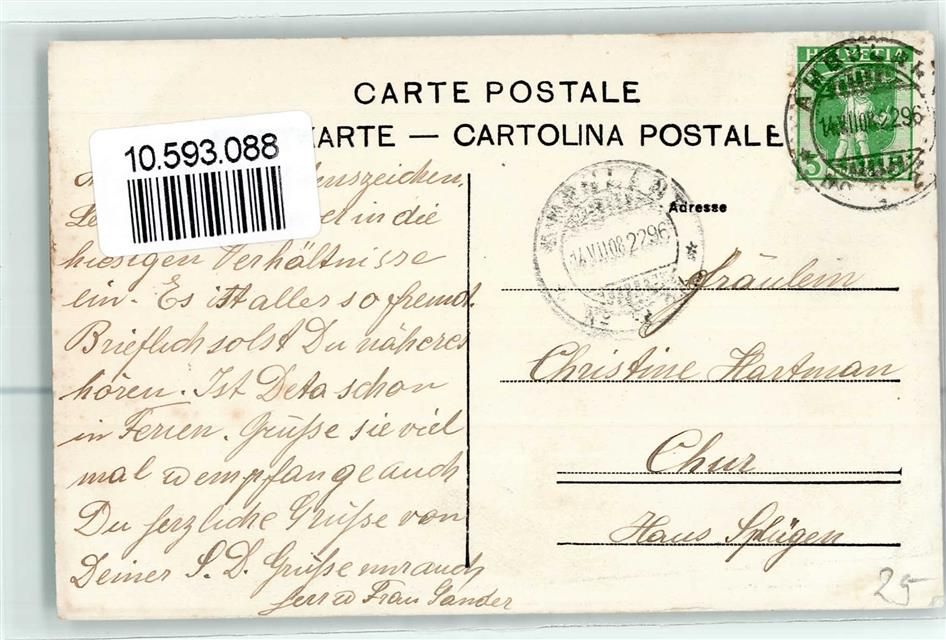 CARTE POSTALE
KARTE — CARTOLINA POSTALE
10.593.088
HELVETIA
5
AMBULANT
14.VII.08.2296
AMBULANT
14.VII.08.2296
Adresse
Lebenszeichen.
in die
hiesigen Verhältnisse
ein. Es ist alles so fremd.
Brieflich solst Du näheres
hören. Ist Deta schon
in Ferien. Grüße sie viel
mal u empfange auch
Du herzliche Grüße von
Deiner S. D. Grüße mir auch
Herr u Frau Gander
Fräulein
Christine Hartman
Chur
Haus Splügen
25